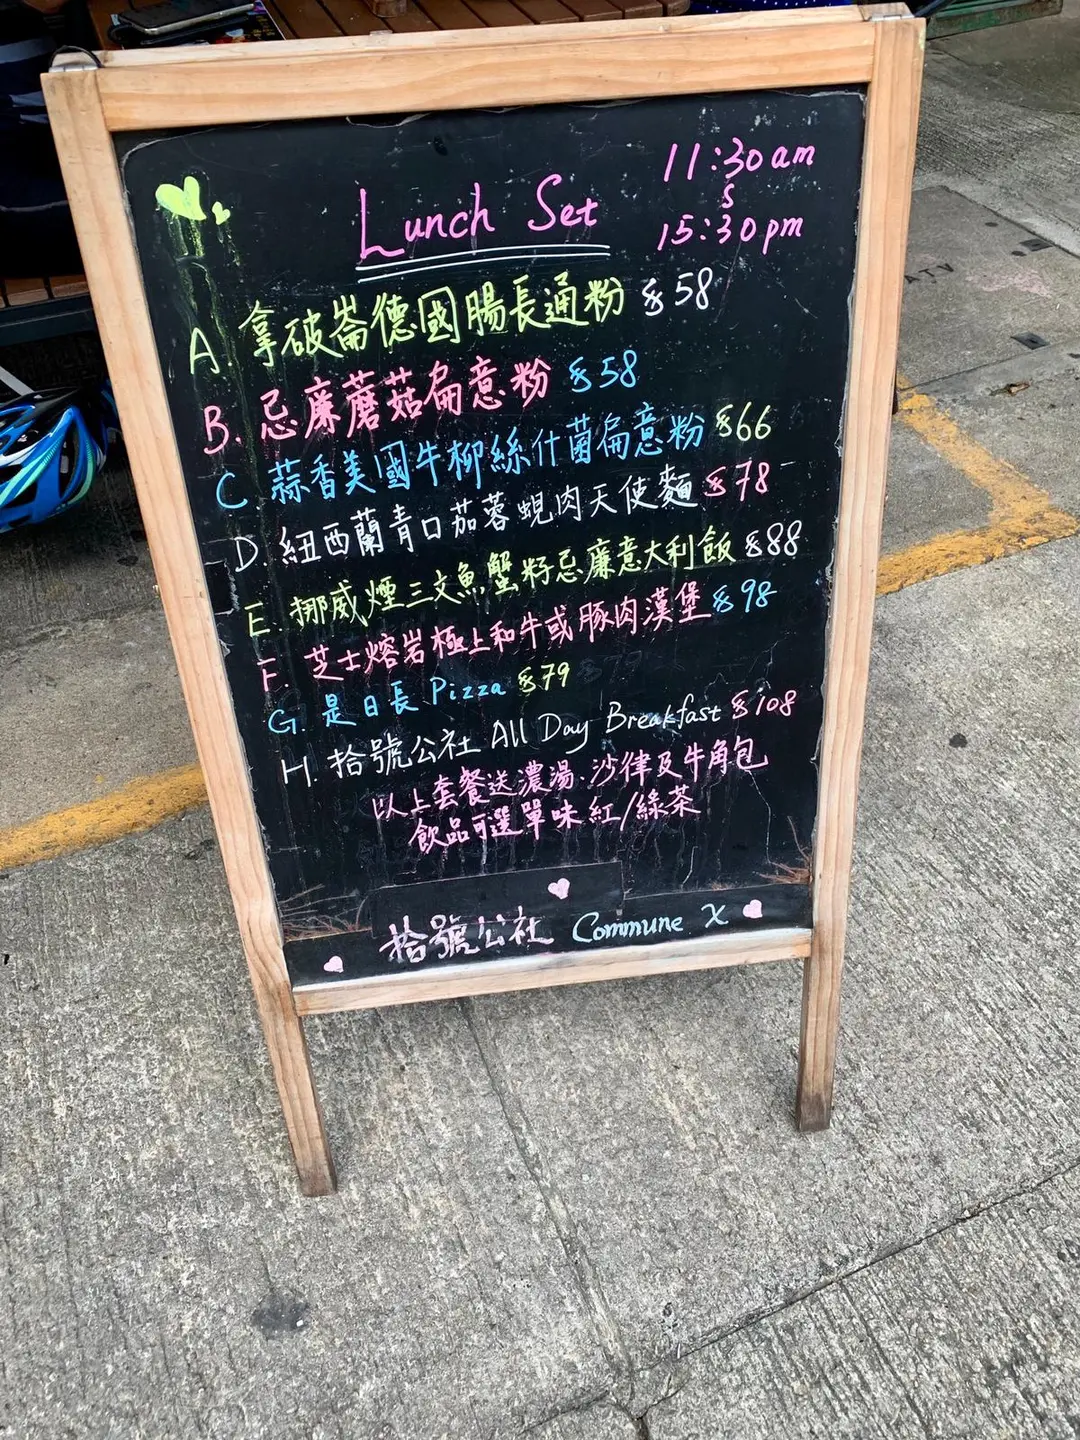 Lunch Set
11:30am
s
15:30pm
A. 拿破崙德國腸長通粉 $58
B. 忌廉蘑菇扁意粉 $58
C 蒜香美國牛柳絲什菌扁意粉 $66
D. 紐西蘭青口茄蓉蜆肉天使麵 $78
E. 挪威煙三文魚蟹籽忌廉意大利飯 $88
F. 芝士熔岩極上和牛或豚肉漢堡 $98
G. 是日長 Pizza $79
H. 拾號公社 All Day Breakfast $108
以上套餐送濃湯、沙律及牛角包
飲品可選單味紅/綠茶
拾號公社 Commune X